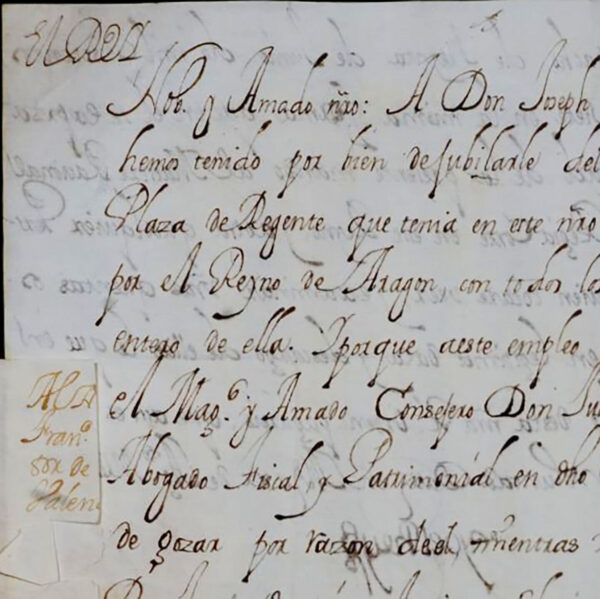 El Rey
Nob. y Amado nro: A Don Joseph
hemos tenido por bien de Jubilarle del
Plaza de Regente que tenia en este nro
por el Reyno de Aragon, con todos los
entero de ella. Yporque aeste empleo
el Mag.co y Amado Consejero Don Ju
Abogado fiscal, y Patrimonial en dho
de gozar por razon deel mientras
Fran.co
sor de
Valen